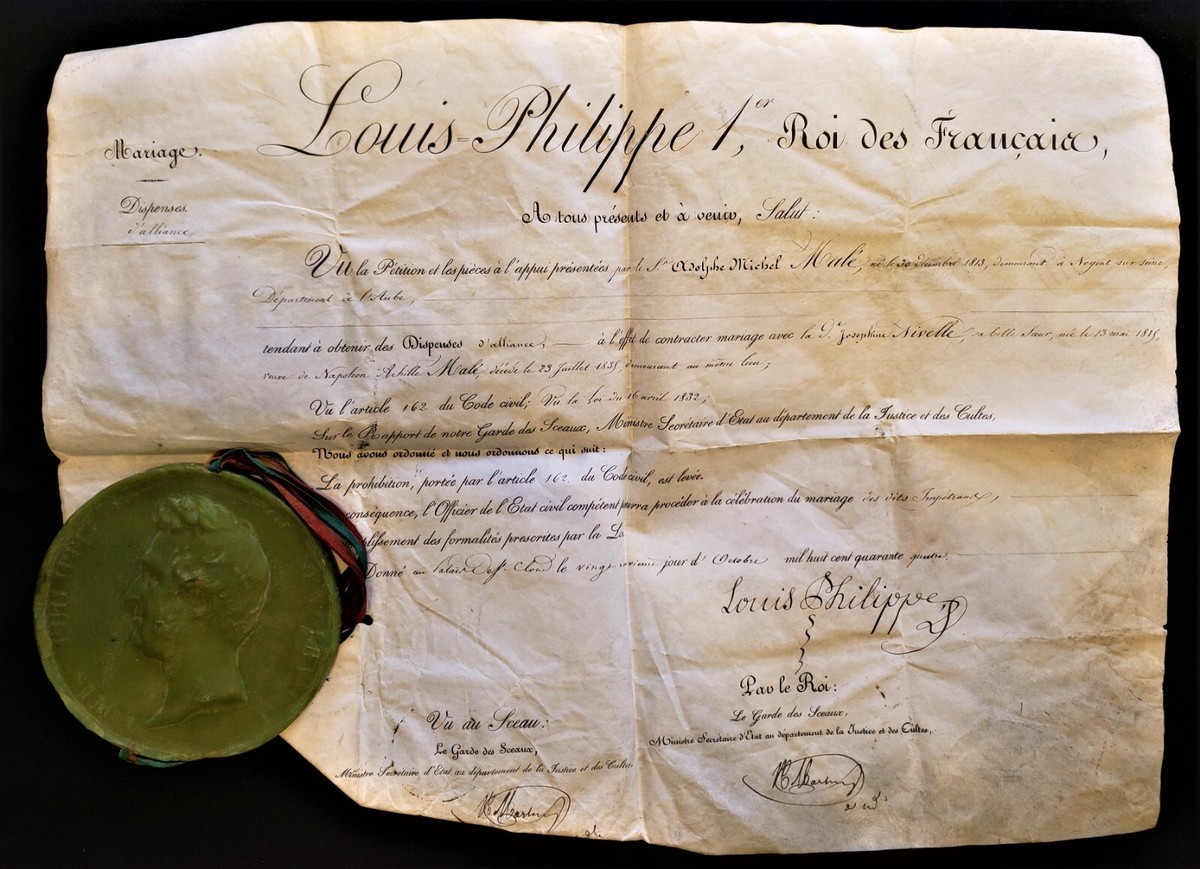 Mariage.
Dispenses.
d'alliance,
Louis-Philippe 1er, Roi des Français,
A tous présents et à venir, Salut:
Vu la Pétition et les pièces à l'appui présentées par le Sr Adolphe Michel Malé, né le 30 décembre 1813, demeurant à Nogent sur seine,
Département de l'Aube,
tendant à obtenir des Dispenses d'alliance, à l'effet de contracter mariage avec la De Josephine Nivelle, sa belle Sœur, née le 13 mai
veuve de Napoléon Achille Malé, décédé le 23 Juillet demeurant au même lieu;
Vu l'article 162 du Code civil; Vu la loi du 16 avril 1832;
Sur le Rapport de notre Garde des Sceaux, Ministre Secrétaire d'Etat au département de la Justice et des Cultes,
Nous avons ordonné et nous ordonnons ce qui suit:
La prohibition, portée par l'article 162, du Code civil, est levée.
conséquence, l'Officier de l'Etat civil compétent pourra procéder à la célébration du mariage des dits Impétrans,
plissement des formalités prescrites par la Lo
Donné au Palais de St Cloud le vingt jour d'Octobre mil huit cent quarante quatre.
Louis Philippe
Par le Roi:
Le Garde des Sceaux,
Ministre Secrétaire d'Etat au département de la Justice et des Cultes,
Vu au Sceau:
Le Garde des Sceaux,
Ministre Secrétaire d'Etat au département de la Justice et des Cultes